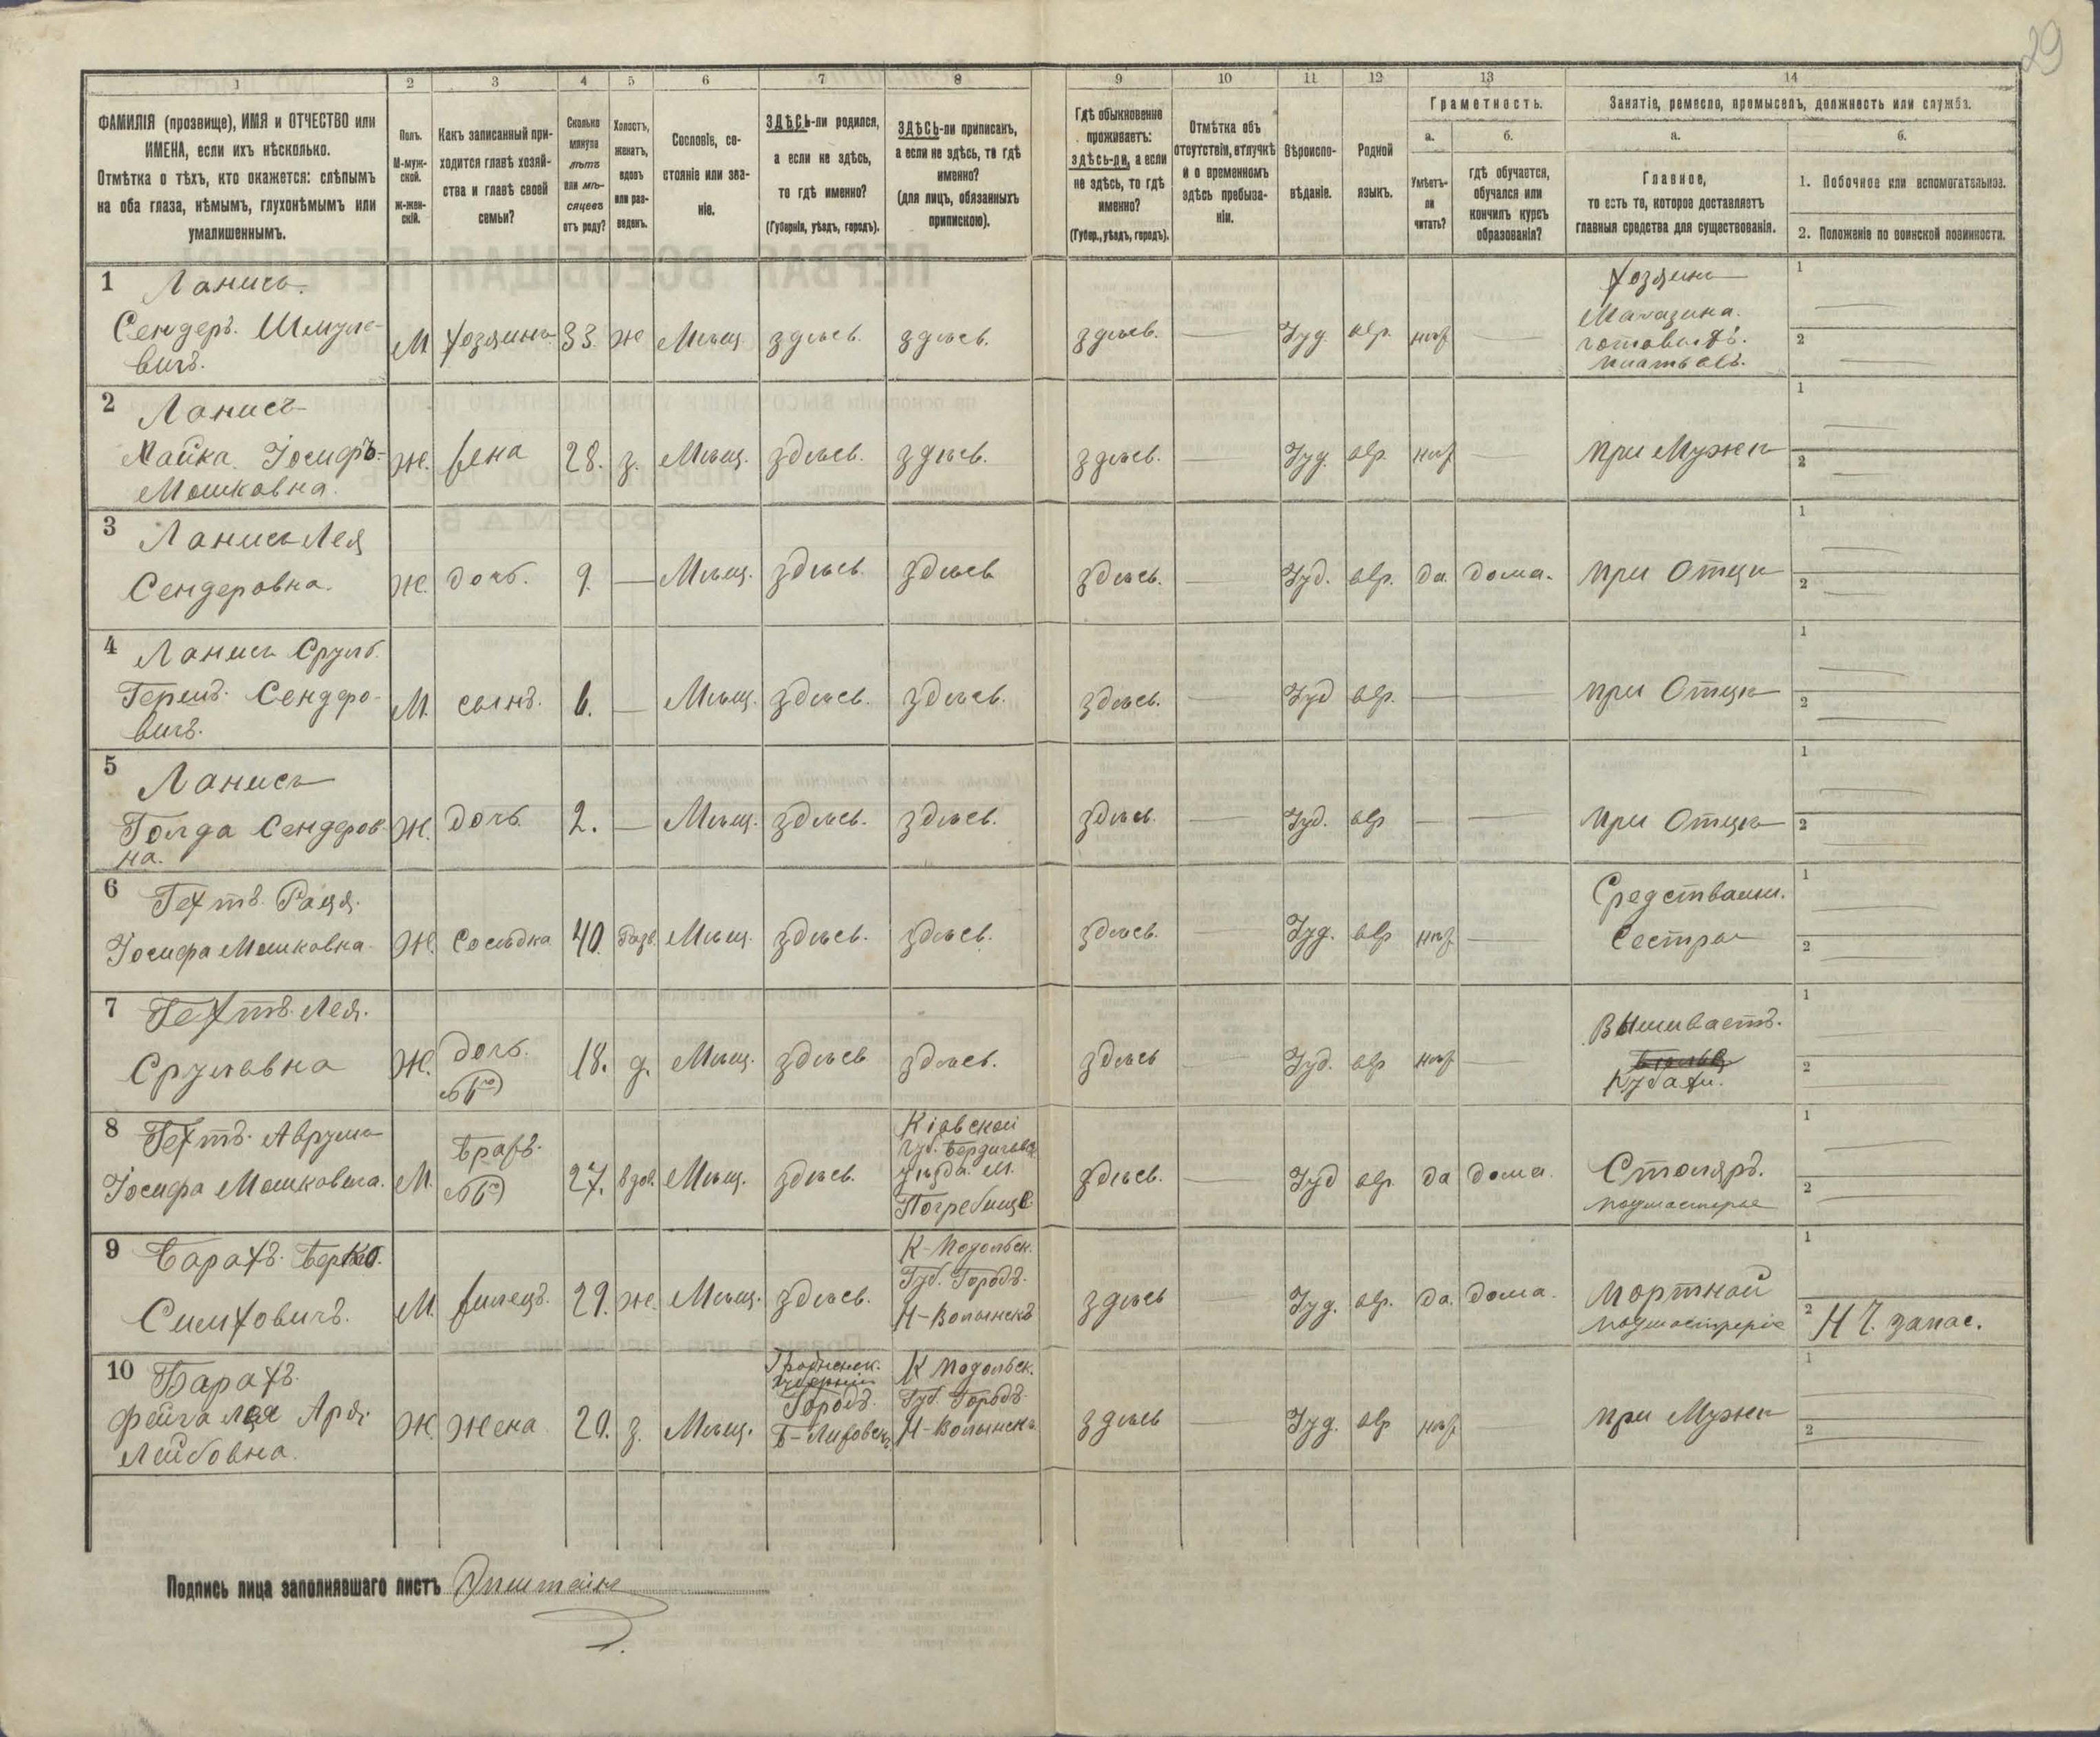 29
1 2 3 4 5 6 7 8 9 10 11 12 13 14
ФАМИЛІЯ (прозвище), ИМЯ и ОТЧЕСТВО или
ИМЕНА, если ихъ нѣсколько.
Отмѣтка о тѣхъ, кто окажется: слѣпымъ
на оба глаза, нѣмымъ, глухонѣмымъ или
умалишеннымъ.
Полъ.
М-муж-
ской.
Ж-жен-
скій.
Какъ записанный при-
ходится главѣ хозяй-
ства и главѣ своей
семьи?
Сколько
минуло
лѣтъ
или мѣ-
сяцевъ
отъ роду?
Холостъ,
женатъ,
вдовъ
или раз-
веденъ.
Сословіе, со-
стояніе или зва-
ніе.
ЗДѢСЬ-ли родился,
а если не здѣсь,
то гдѣ именно?
(Губернія, уѣздъ, городъ).
ЗДѢСЬ-ли приписанъ,
а если не здѣсь, то гдѣ
именно?
(для лицъ, обязанныхъ
припискою).
Гдѣ обыкновенно
проживаетъ:
здѣсь-ли, а если
не здѣсь, то гдѣ
именно?
(Губер., уѣздъ, городъ).
Отмѣтка объ
отсутствіи, отлучкѣ
и о временномъ
здѣсь пребыва-
ніи.
Вѣроиспо-
вѣданіе.
Родной
языкъ.
Грамотность.
а.
Умѣетъ-
ли
читать?
б.
гдѣ обучается,
обучался или
кончилъ курсъ
образованія?
Занятіе, ремесло, промыселъ, должность или служба.
а.
Главное,
то есть то, которое доставляетъ
главныя средства для существованія.
б.
1. Побочное или вспомогательное.
2. Положеніе по воинской повинности.
1 Ланисъ
Сендеръ Шмуле-
вичъ.
М Хозяинъ 33. ж Мѣщ. здѣсь. здѣсь. здѣсь. — Іуд. евр. нѣт —
Хозяинъ
Магазина.
готоваго
платья.
1
2
2 Ланисъ
Хайка Іосифъ-
Мошковна.
Ж. Жена 28. з. Мѣщ. здѣсь. здѣсь. здѣсь. — Іуд. евр нѣт — при Мужѣ
1
2
3 Ланисъ Лея
Сендеровна.
Ж. дочь. 9. — Мѣщ. здѣсь. здѣсь здѣсь. — Іуд. евр. да. дома. при Отцѣ
1
2
4 Ланисъ Сруль
Гершъ Сендеро-
вичъ.
М. сынъ. 6. — Мѣщ. здѣсь. здѣсь. здѣсь. — Іуд евр. — — при Отцѣ
1
2
5 Ланисъ
Голда Сендеров-
на.
Ж. дочь 2. — Мѣщ. здѣсь. здѣсь. здѣсь. — Іуд. евр — — при Отцѣ
1
2
6 Гехтъ Рация
Іосифа Мошковна.
Ж. Сосѣдка 40. Разв. Мѣщ. здѣсь. здѣсь. здѣсь. — Іуд. евр нѣт —
Средствами.
Сестры
1
2
7 Гехтъ Лея.
Срулевна
Ж. дочь. 18. д. Мѣщ. здѣсь здѣсь. здѣсь — Іуд. евр нѣт —
Вышиваетъ.
1
2
8 Гехтъ Аврумъ
Іосифа Мошковичъ.
М. Братъ. 27. вдов. Мѣщ. здѣсь.
Кіевской
Губ. Бердичевск
Уѣзда. М.
Погребище
здѣсь. — Іуд евр. да дома.
Столяръ.
подмастерье
1
2
9 Барахъ Берко.
Симховичъ.
М. Жилецъ. 29. ж. Мѣщ. здѣсь.
К-Подольск.
Губ. Городъ.
Н-Волынскъ
здѣсь — Іуд. евр. да. дома.
Портной
подмастерье
1
2 Н Ч. запас.
10 Барахъ.
Фейга Лея Арія
Лейбовна.
Ж. Жена 20. з. Мѣщ.
Гродненск.
губерніи
Городъ.
Б-Литовскъ
К Подольск.
Губ. Городъ
Н-Волынскъ
здѣсь — Іуд. евр нѣт при Мужѣ
1
2
Подпись лица заполнявшаго листъ Эпштейнъ